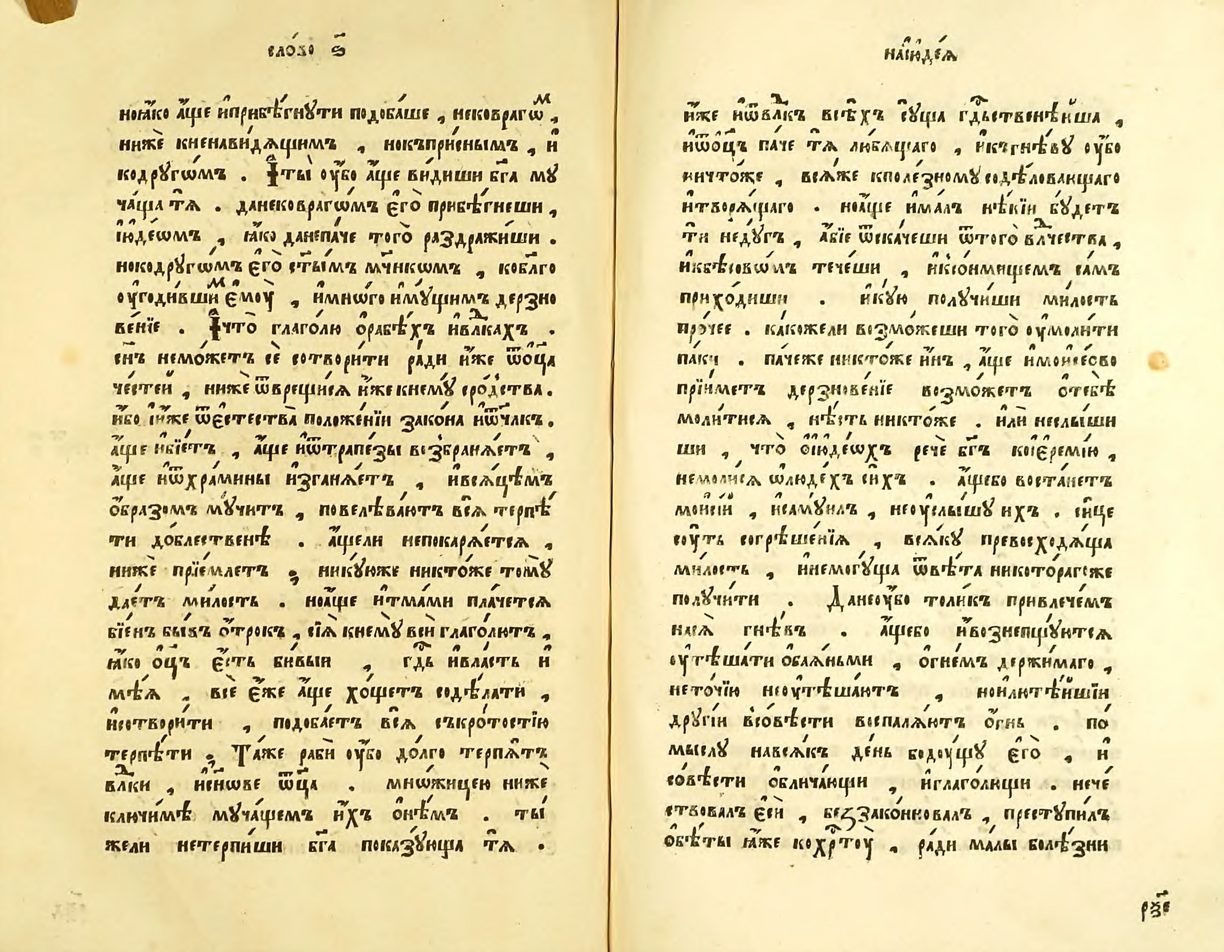 сло́во ѕ҃
ноꙗ҆́ко а҆́ще и҆прибѣ́гнꙋти подоба́ше , нековраго́мⷨ ,
ниже́ кненави́дѧщимъ , нокъпри́снымъ , и҆
кодрꙋго́мъ . И҆ты̀ оу҆́бо а҆́ще ви́диши бг҃а мꙋ
ча́ща тѧ̀ . данековраго́мъ є҆го̀ прибѣ́гнеши ,
і҆юде́ѡмъ , ꙗ҆́ко данепа́че того̀ раздражи́ши .
нокодрꙋгѡ́мъ є҆го̀ ст҃ы́мъ мч҃нкѡмъ , кобл҃го
оу҆годи́вшимⷨ є҆моу̀ , и҆мно́го и҆мꙋ́щимъ дерзно
ве́нїе . И҆что̀ глаго́лю ѡ҆рабѣ́хъ и҆вл҃ⷣкахъ .
сн҃ъ немо́жетъ сѐ сотвори́ти ра́ди и҆́же ѿо҆ца̀
че́стей , ниже́ ѿврещи́сѧ и҆́же кнемꙋ̀ сро́дства .
и҆́бо і҆и҆́же ѿестества̀ положе́нїи зако́на и҆ѿчл҃къ .
а҆́ще и҆бїе́тъ , а҆́ще и҆ѿтрапе́зы возбранѧ́етъ ,
а҆́ще и҆ѿхра́мины и҆зганѧ́етъ , и҆всѧ́цѣмъ
о҆́бразомъ мꙋ́читъ , повелѣва́ютъ всѧ̀ терпѣ́
ти до́блественѣ . а҆́щели непокарѧ́етсѧ ,
ниже́ прїе́млетъ ; никꙋ́юже никто́же томꙋ̀
дае́тъ ми́лость . ноа҆́ще и҆тма́ми пла́четсѧ
бїе́нъ бы́въ ѻ҆́трокъ , сїѧ̑ кнемꙋ̀ всѝ глаго́лютъ ,
ꙗ҆́ко о҆ц҃ъ є҆́сть би́выи , гд҃ь и҆вла́сть и҆
мѣ́ѧ , всѐ є҆́же а҆́ще хо́щетъ содѣ́лати ,
и҆сотвори́ти , подоба́етъ всѧ̀ съкро́тостїю
терпѣ́ти . Та́же рабѝ оу҆́бо до́лго терпѧ́тъ
вл҃ⷣки , и҆сы́нове ѿца̀ . мно́жицею нижѐ
ключи́мѣ мꙋча́щемъ и҆́хъ о҆нѣ́мъ . ты̀
же́ли нетерпи́ши бг҃а показꙋ́юща тѧ̀ .
наі҆юде́ѧ
и҆́же и҆ѿвл҃ⷣкъ всѣ́хъ сꙋ́ща гдⷭ҇ьственѣ́йша ,
и҆ѿо҆ц҃ъ па́че тѧ̀ лю́бѧщаго , и҆къгнѣ́вꙋ оу҆́бо
ничто́же , всѧ̑же кполе́зномꙋ содѣ́ловающаго
и҆творѧ́щаго . ноа҆́ще и҆ма́лъ нѣ́кїи бꙋ́детъ
ти недꙋ́гъ , а҆́бїе ѿска́чеши ѿтого̀ вл҃ⷣчества ,
и҆кбѣсовѡ́мъ тече́ши , и҆ксо́нмищемъ са́мъ
прихо́диши . и҆кꙋ́ю полꙋ́чиши ми́лость
про́чее . ка́кожели возмо́жеши того̀ оу҆моли́ти
па́ки . па́чеже никто́же и҆́нъ , а҆́ще и҆мои҆се́ово
прїи́метъ дерзнове́нїе возмо́жетъ о҆тебѣ̀
моли́тисѧ , нѣ́сть никто́же . и҆лѝ неслы́ши
ши , что̀ о҆і҆юде́ѡхъ речѐ бг҃ъ коі҆ере́мїю ,
немоли́сѧ ѡ҆лю́дехъ си́хъ . а҆́щебо воста́нетъ
мо́исїи , и҆самꙋи́лъ , неоу҆слы́шꙋ и҆́хъ . си́це
сꙋ́ть согрѣше́нїѧ , всѧ́кꙋ превосходѧ́ща
ми́лость , и҆немогꙋ́ща ѿвѣ́та никото́рагоже
полꙋчи́ти . Данеоу҆́бо толи́къ привлече́мъ
насѧ̀ гнѣ́въ . а҆́щебо и҆возмепщꙋ́ютсѧ
оу҆тѣша́ти о҆баѧ́ньми , о҆гне́мъ держи́маго ,
нето́чїю неоу҆тѣша́ютъ , нои҆лютѣ́йшїи
дрꙋгі́и всо́вѣсти воспалѧ́ютъ о҆́гнь . по
мы́слꙋ навсѧ́къ де́нь бодꙋ́щꙋ є҆го̀ , и҆
со́вѣсти о҆блича́ющи , и҆глаго́лющи . нече́
ствовалъ є҆сѝ , беззако́нновалъ , престꙋпи́лъ
о҆бѣ́ты ꙗ҆̀же кохрⷭ҇тоу̀ , ра́ди ма́лы болѣ́зни
рѯ҃є